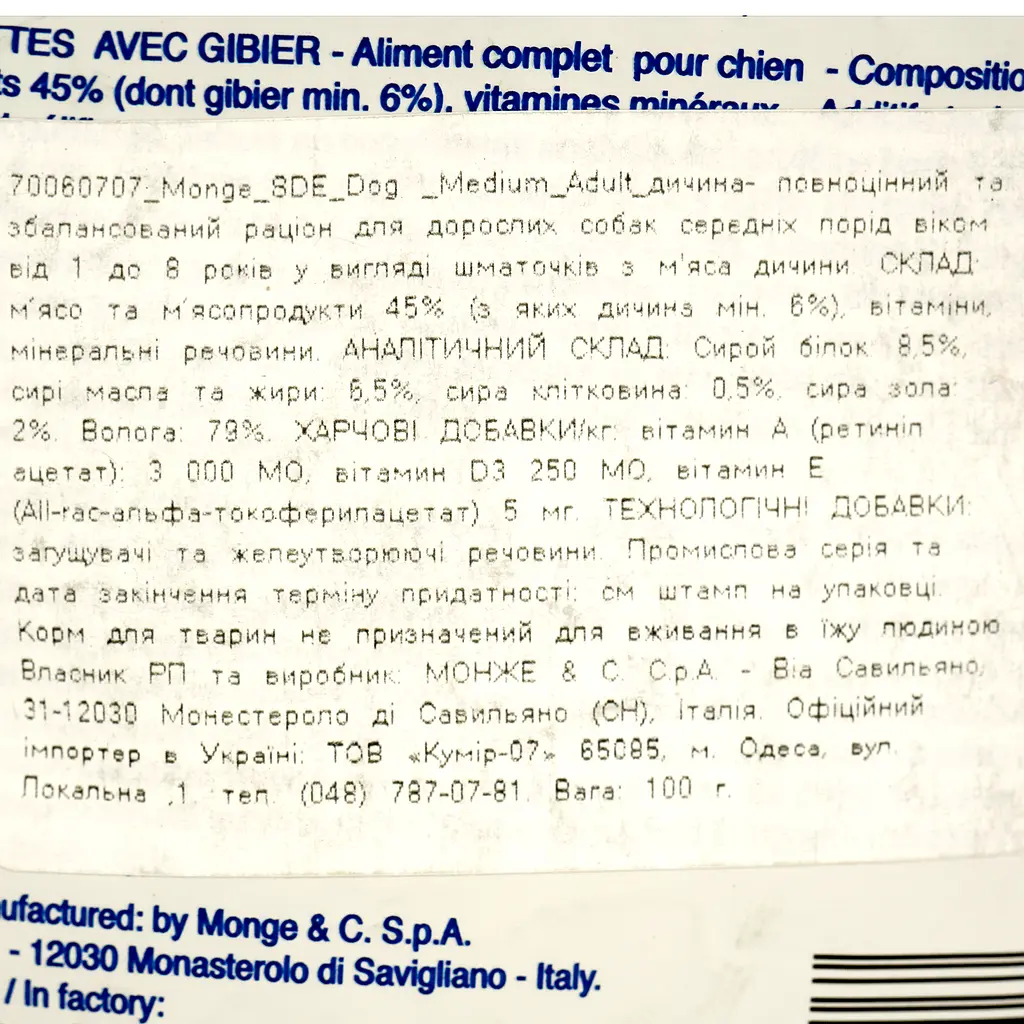 TTES AVEC GIBIER - Aliment complet pour chien - Compositio
ts 45% (dont gibier min. 6%), vitamines minéraux
70060707_Monge_SDE_Dog _Medium_Adult_дичина- повноцінний та
збалансований раціон для дорослих собак середніх порід віком
від 1 до 8 років у вигляді шматочків з м'яса дичини. СКЛАД:
м'ясо та м'ясопродукти 45% (з яких дичина мін. 6%), вітаміни,
мінеральні речовини. АНАЛІТИЧНИЙ СКЛАД: Сирой білок: 8,5%,
сирі масла та жири: 6,5%, сира клітковина: 0,5%, сира зола:
2%. Волога: 79%. ХАРЧОВІ ДОБАВКИ/кг: вітамин А (ретиніл
ацетат): 3 000 МО, вітамин D3 250 МО, вітамин Е
(All-rac-альфа-токоферилацетат) 5 мг. ТЕХНОЛОГІЧНІ ДОБАВКИ:
загущувачі та желеутворюючі речовини. Промислова серія та
дата закінчення терміну придатності: см штамп на упаковці.
Корм для тварин не призначений для вживання в їжу людиною
Власник РП та виробник: МОНЖЕ & С. С.р.А. - Віа Савильяно,
31-12030 Монестероло ді Савильяно (СН), Італія. Офіційний
імпортер в Україні: ТОВ «Кумір-07» 65085, м. Одеса, вул.
Локальна ,1. тел. (048) 787-07-81. Вага: 100 г.
ufactured: by Monge & C. S.p.A.
- 12030 Monasterolo di Savigliano - Italy.
/ In factory: